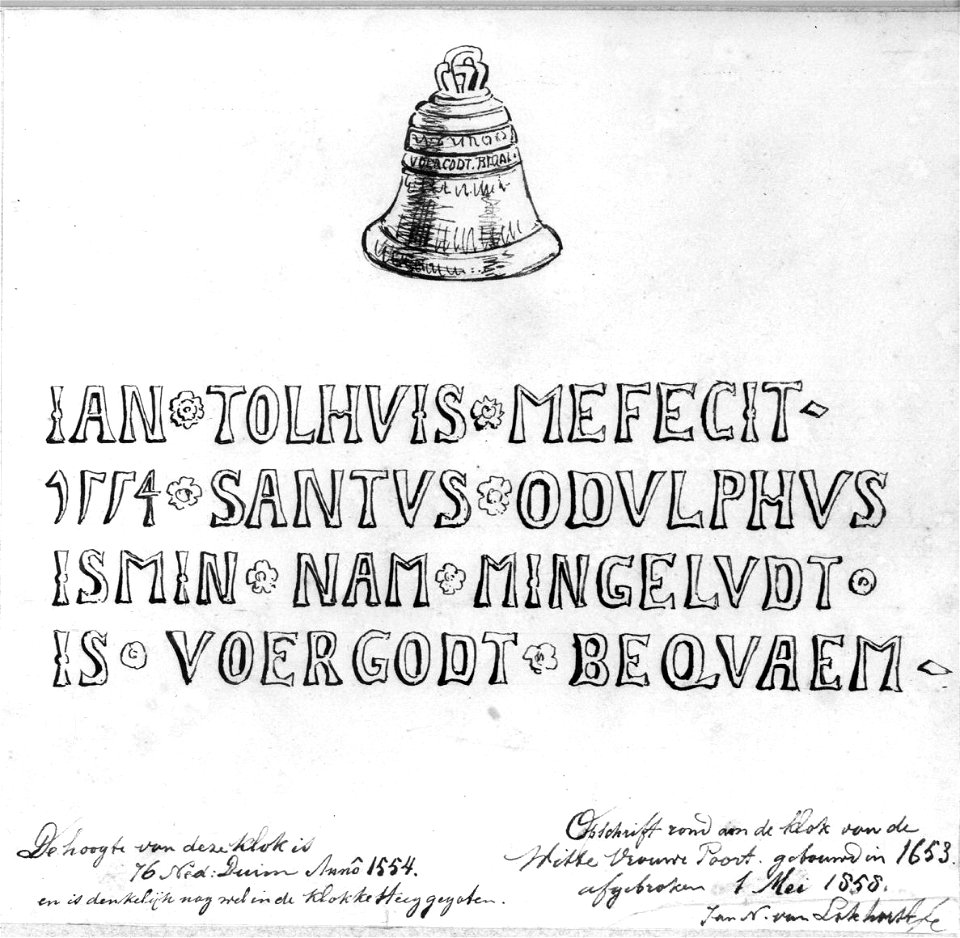 VOERGODT. BEQAL.
IAN TOLHVIS MEFECIT
1554 SANTVS ODVLPHVS
ISMIN NAM MINGELVDT
IS VOERGODT BEQVAEM
De hoogte van deze klok is
76 Ned: Duim Anno 1554.
en is denkelijk nog wel in de klokke Steeg gegoten.
Opschrift rond om de klok van de
Witte Vrouwe Poort. gebouwd in 1653.
afgebroken 1 Mei 1858.
Jan N. van Lokhorst fe